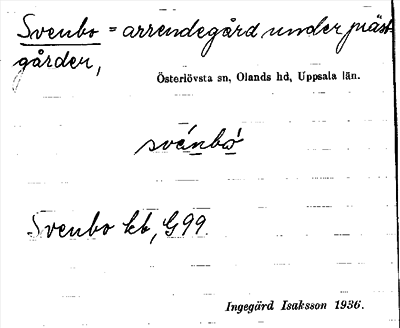 Svenbo = arrendegård under präst-
gården,
Österlövsta sn, Olands hd, Uppsala län.
svénbò
Svenbo kb, G99
Ingegärd Isaksson 1936.